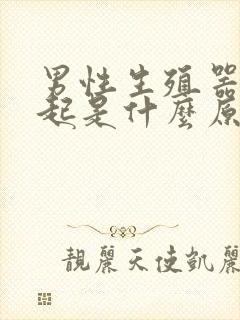 男性生殖器
起是什麼原
靚麗天使凱麗